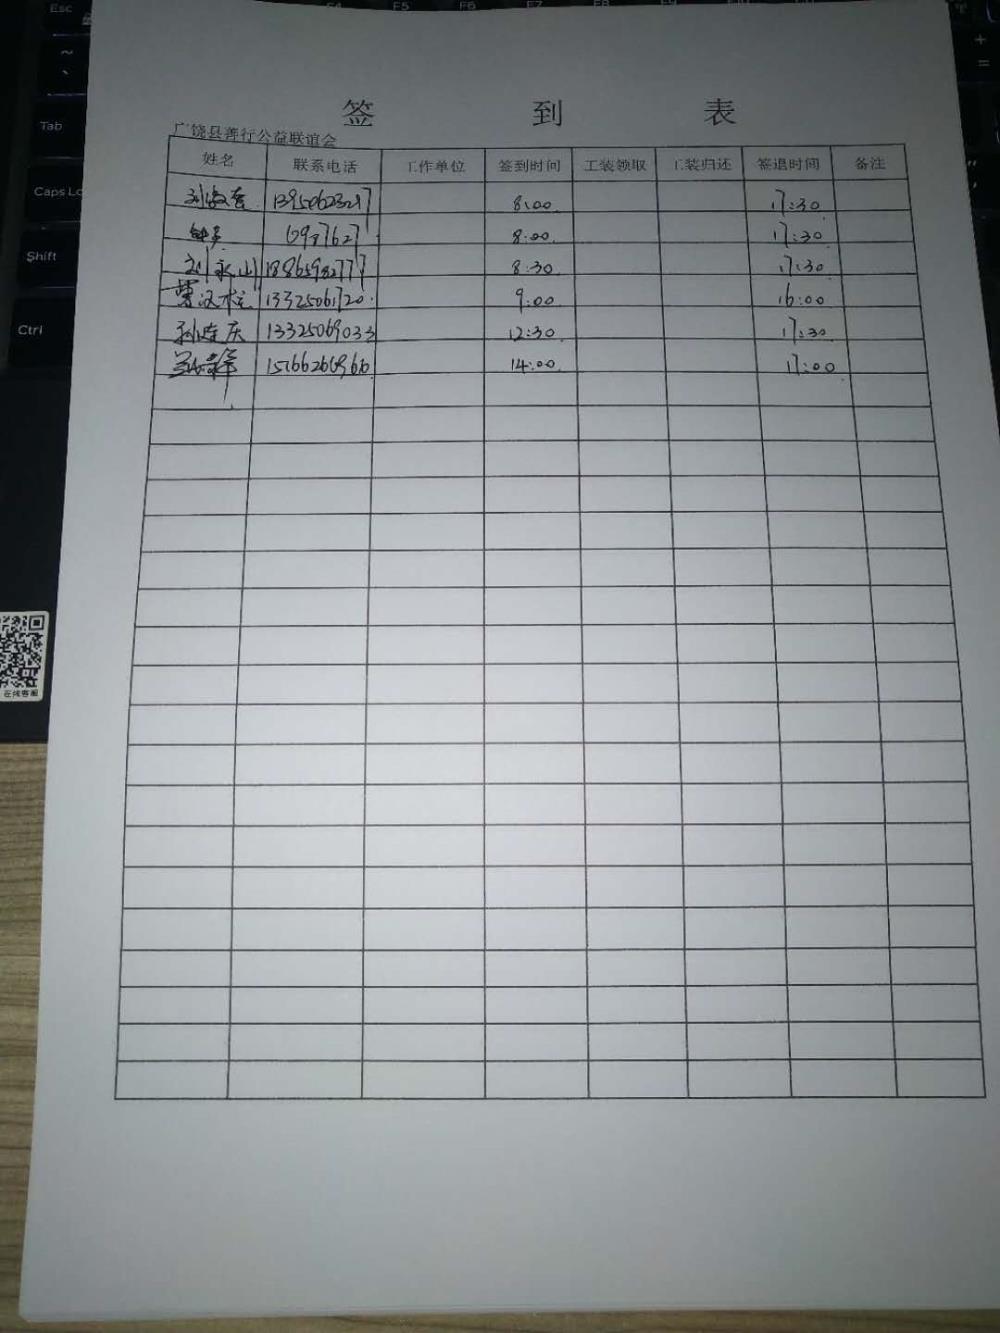 Esc
F5
F6
F7
F8
Tab
Caps Lo
Shift
Ctrl
签 到 表
广饶县善行公益联谊会
姓名 联系电话 工作单位 签到时间 工装领取 工装归还 签退时间 备注
8:00 17:30
8:00 17:30
刘永山 8:30 17:30
13325061720 9:00 16:00
孙连庆 13325069033 12:30 17:30
14:00 17:00
在线客服